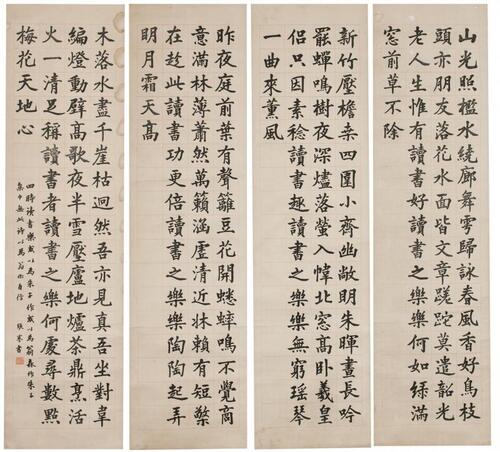 山光照檻水繞廊舞雩歸詠春風香好鳥枝
頭亦朋友落花水面皆文章蹉跎莫遣韶光
老人生惟有讀書好讀書之樂樂何如綠滿
窓前草不除
新竹壓檐桑四圍小齋幽敞明朱暉晝長吟
罷蟬鳴樹夜深燼落螢入幃北窓高卧羲皇
侶只因素稔讀書趣讀書之樂樂無窮瑤琴
一曲來薰風
昨夜庭前葉有聲籬豆花開蟋蟀鳴不覺商
意滿林薄蕭然萬籟涵虛清近牀賴有短檠
在趁此讀書功更倍讀書之樂樂陶陶起弄
明月霜天高
木落水盡千崖枯迥然吾亦見真吾坐對韋
編燈動壁高歌夜半雪壓廬地爐茶鼎烹活
火一清足稱讀書者讀書之樂樂何處尋數點
梅花天地心
四時讀書樂或以為朱子作或以為翁森作朱子
集中無此詩以為翁作自信